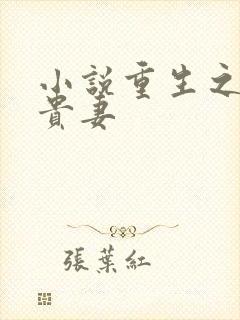 小説重生之
貴妻
張葉紅